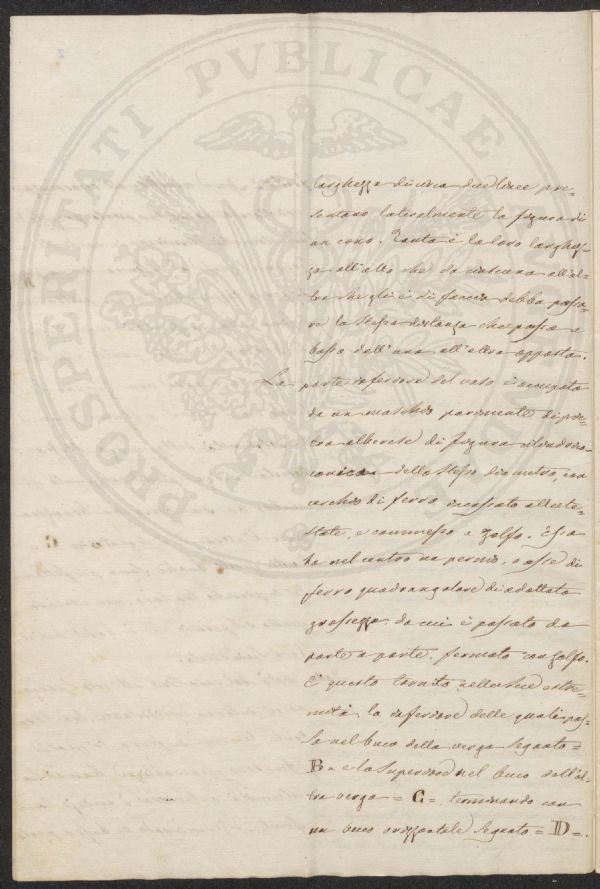 PROSPERITATI PVBLICAE AVGENDAE
larghezza di circa due linee pre=
sentano lateralmente la figura di
un cono. Tanta è la loro larghez=
za all'alto che da ciascuna all'al=
tra che gli è di faccia debba passa=
re la stessa distanza che passa a
basso dall'una all'altra opposta.
La parte inferiore del vaso è occupata
da un maschio parimente di pie=
tra alberese di figura cilindrico=
conica dello stesso diametro, con
cerchio di ferro incassato alle te=
state, e commesso a zolfo. Essa
ha nel centro un pernio, o asse di
ferro quadrangolare di adattata
grossezza da cui è passato da
parte a parte, fermato con zolfo.
È questo tornito nelle sue estre=
mità, la inferiore delle quali pas=
sa nel buco della verga segnato =
B = e la superiore nel buco dell'al=
tra verga = C = terminando con
un buco orizzontale segnato = D =.